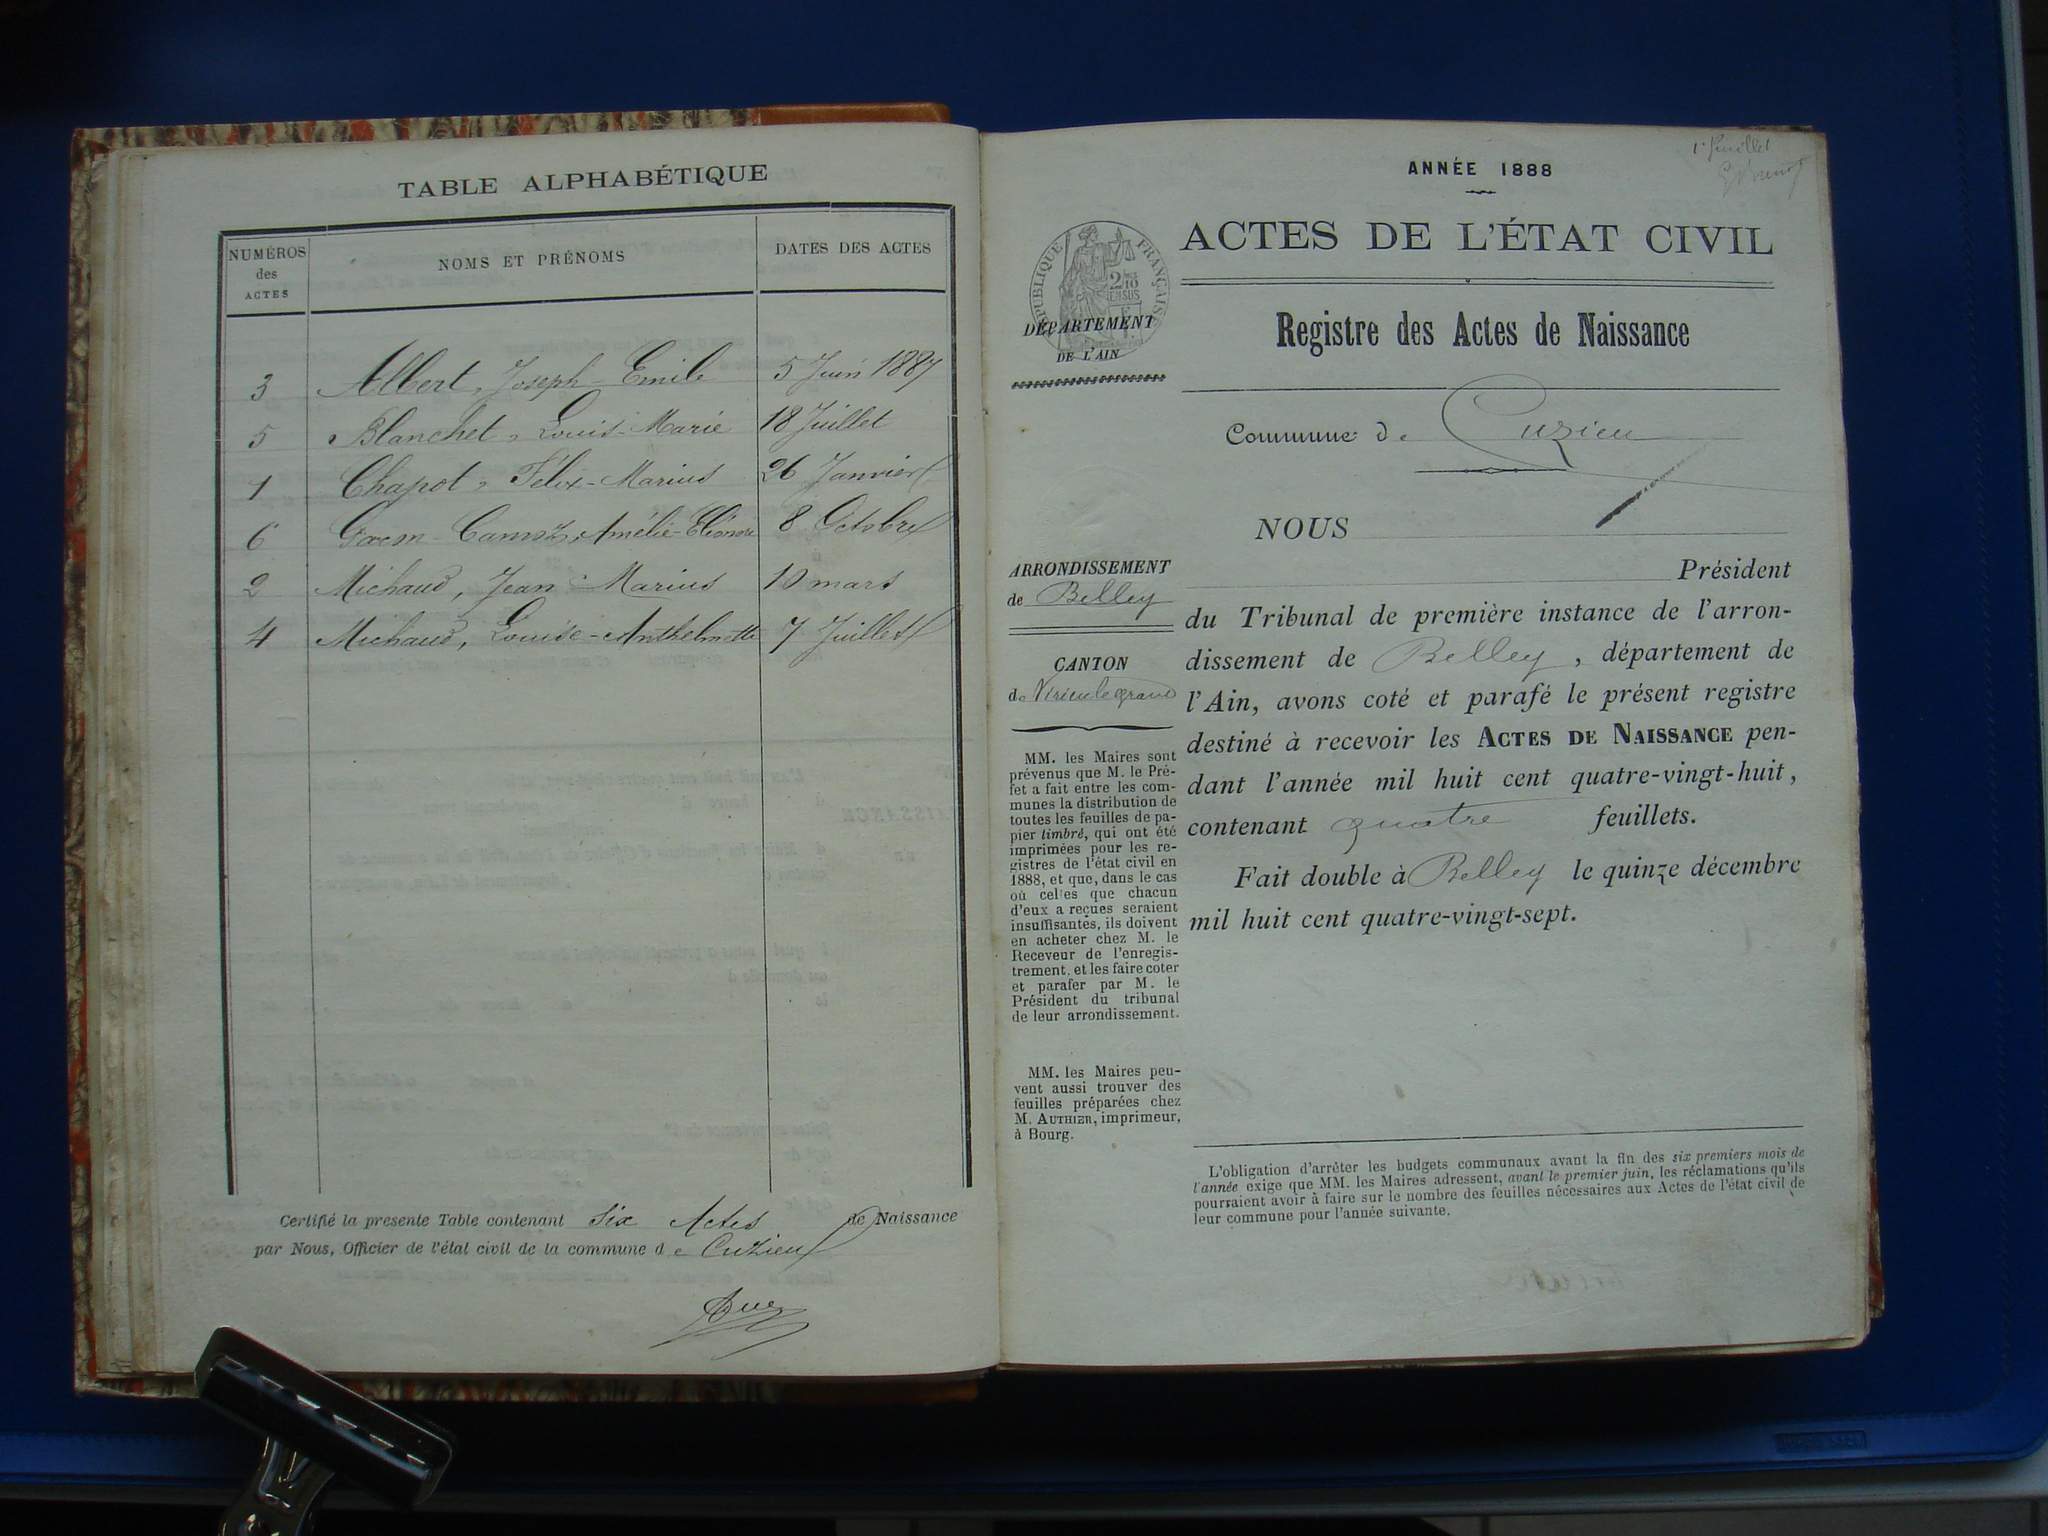 TABLE ALPHABÉTIQUE
NUMÉROS des ACTES
NOMS ET PRÉNOMS
DATES DES ACTES
3 Albert, Joseph-Emile 5 Juin 1887
5 Blanchet, Louis-Marie 18 Juillet
1 Chapot, Félix-Marius 26 Janvier
6 Amélie-Eléonore 8 Octobre
2 Michaud, Jean-Marius 10 mars
4 Michaud, Louise-Anthelmette 7 Juillet
Certifié la presente Table contenant six Actes de Naissance
par Nous, Officier de l'état civil de la commune de Cuzieu
1er feuillet
ANNÉE 1888
ACTES DE L'ÉTAT CIVIL
RÉPUBLIQUE FRANÇAISE
2/10 EN SUS
DÉPARTEMENT
DE L'AIN
Registre des Actes de Naissance
Commune de Cuzieu
NOUS
Président
du Tribunal de première instance de l'arron-
dissement de Belley, département de
l'Ain, avons coté et parafé le présent registre
destiné à recevoir les ACTES DE NAISSANCE pen-
dant l'année mil huit cent quatre-vingt-huit,
contenant quatre feuillets.
Fait double à Belley le quinze décembre
mil huit cent quatre-vingt-sept.
ARRONDISSEMENT
de Belley
CANTON
de Virieu le grand
MM. les Maires sont
prévenus que M. le Pré-
fet a fait entre les com-
munes la distribution de
toutes les feuilles de pa-
pier timbré, qui ont été
imprimées pour les re-
gistres de l'état civil en
1888, et que, dans le cas
où celles que chacun
d'eux a reçues seraient
insuffisantes, ils doivent
en acheter chez M. le
Receveur de l'enregis-
trement, et les faire coter
et parafer par M. le
Président du tribunal
de leur arrondissement.
MM. les Maires peu-
vent aussi trouver des
feuilles préparées chez
M. AUTHIER, imprimeur,
à Bourg.
L'obligation d'arrêter les budgets communaux avant la fin des six premiers mois de
l'année exige que MM. les Maires adressent, avant le premier juin, les réclamations qu'ils
pourraient avoir à faire sur le nombre des feuilles nécessaires aux Actes de l'état civil de
leur commune pour l'année suivante.